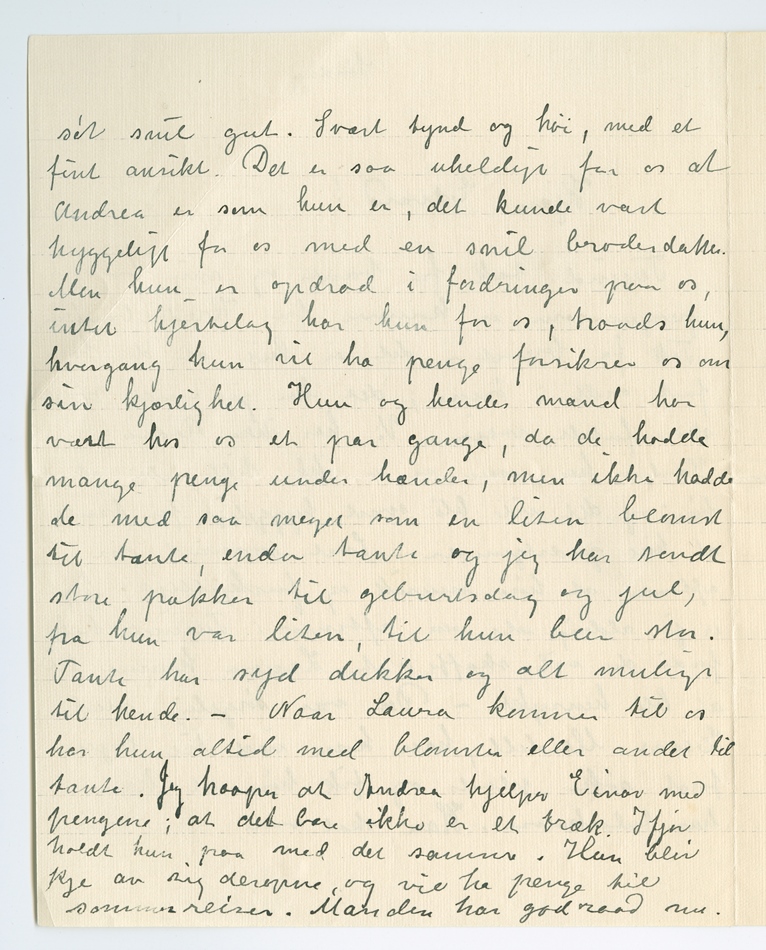 söt snil gut. Svært tynd og høi, med et
fint ansikt. Det er saa uheldigt for os at
Andrea er som hun er, det kunde vært
hyggeligt for os med en snil broderdatter.
Men hun er opdrad i fordringer paa os,
intet hjertelag har hun for os, traads hun,
hvergang hun vil ha penge forsikrer os om
sin kjærlighet. Hun og hendes mand har
vært hos os et par gange, da de hadde
mange penge under hænder, men ikke hadde
de med saa meget som en liten blomst
til tante, enda tante og jeg har sendt
store pakker til geburtsdag og jul,
fra hun var liten, til hun blev stor.
Tante har syd dukker og alt muligt
til hende. – Naar Laura kommer til os
har hun altid med blomster eller andet til
tante. Jeg haaper at Andrea hjelper Einar med
pengene; at det bare ikke er et træk. Ifjor
holdt hun paa med det samme. Hun blir
kje av sig deroppe, og vil ha penge til
sommerreiser. Manden har god raad nu.